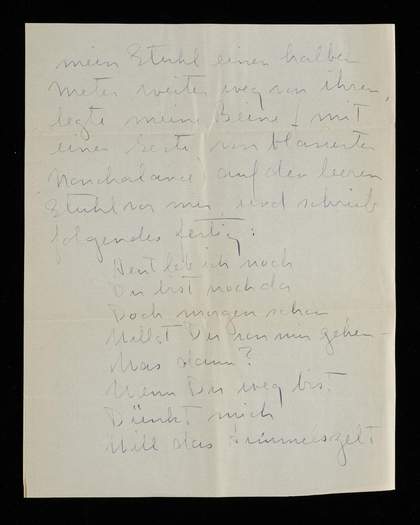 mein Stuhl einen halben
Meter weiter weg von ihnen,
legte meine Beine, mit
einer Geste von blasierter
Nonchalance, auf den leeren
Stuhl vor mir, und schrieb
folgendes fertig:
Heut leb ich noch
Du bist noch da
Doch morgen schon
Willst Du von mir gehen –
Was dann?
Wenn Du weg bist
Dünkt mich
Will das Himmelszelt